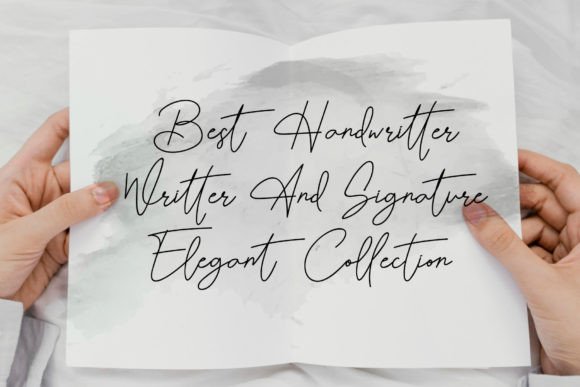 Best Handwritter
Writter And Signature
Elegant Collection